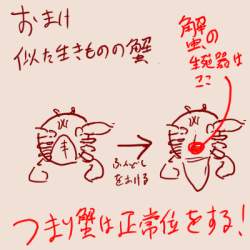 おまけ
似た生きものの蟹
蟹の
生殖器は
ココ
ふんどし
をあける
つまり蟹は正常位をする!